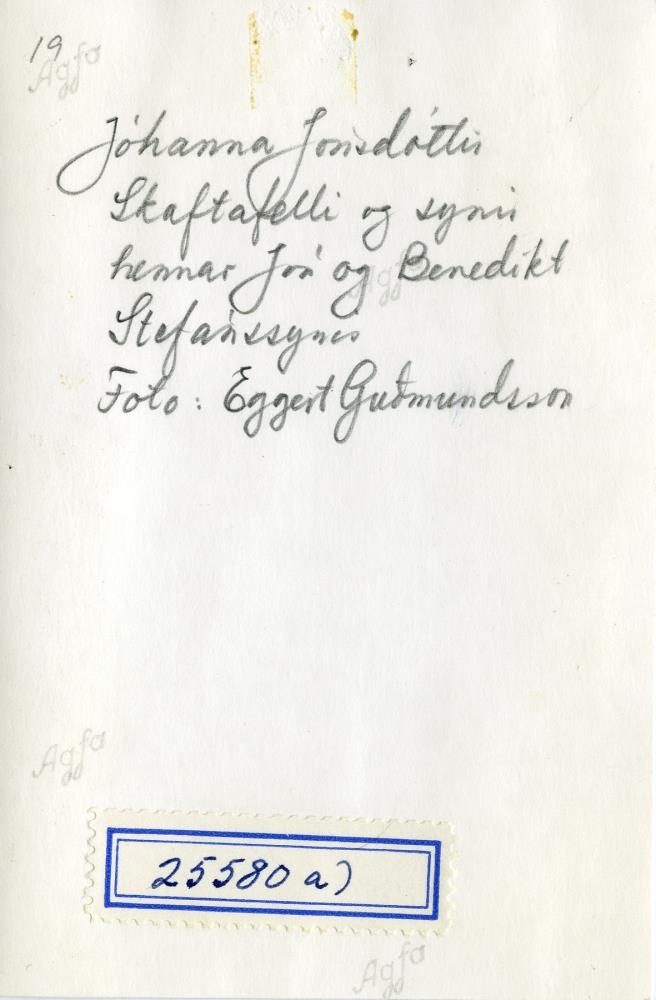 19
Agfa
Jóhanna Jónsdóttir
Skaftafelli og synir
hennar Jón og Benedikt
Agfa
Stefánssynir
Foto: Eggert Guðmundsson
Agfa
25580 a)
Agfa